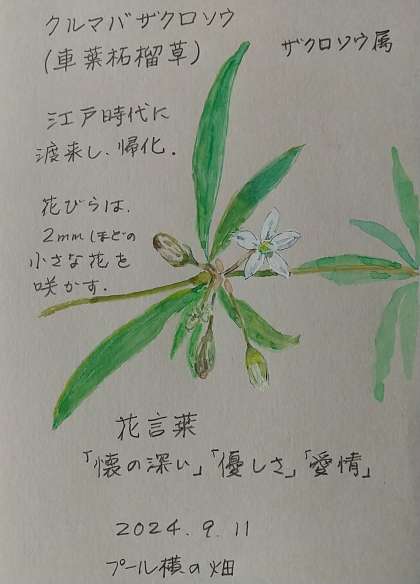 クルマバザクロソウ
(車葉柘榴草)
ザクロソウ属
江戸時代に
渡来し、帰化.
花びらは、
2mmほどの
小さな花を
咲かす.
花言葉
「懐の深い」「優しさ」「愛情」
2024. 9. 11
プール横の畑